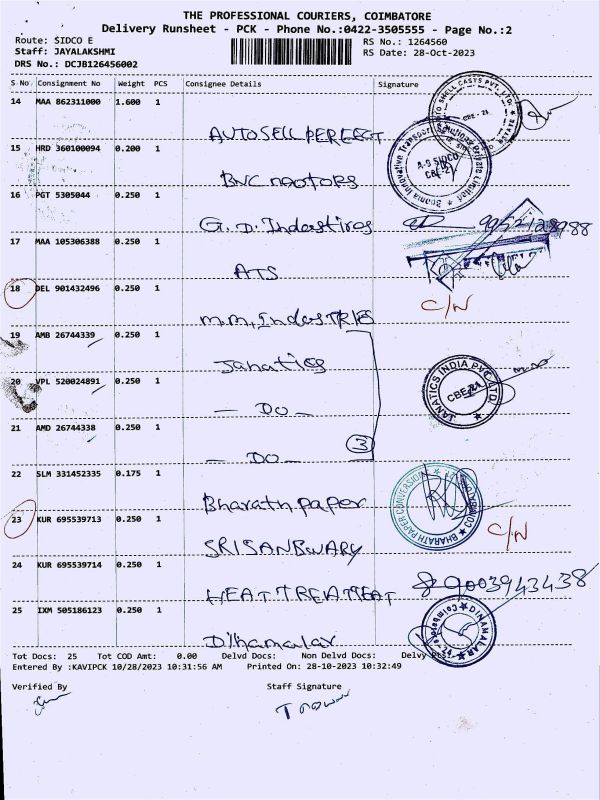 THE PROFESSIONAL COURIERS, COIMBATORE
Delivery Runsheet - PCK - Phone No.:0422-3505555 - Page No.:2
Route: SIDCO E
RS No.: 1264560
Staff: JAYALAKSHMI
RS Date: 28-Oct-2023
DRS No.: DCJB126456002
S No. Consignment No Weight PCS Consignee Details Signature
14 MAA 862311000 1.600 1
AUTOSELL PERFECT
15 HRD 360100094 0.200 1
BNC motors
16 PGT 5305044 0.250 1
G.D. Industires
17 MAA 105306388 0.250 1
ATS
18 DEL 901432496 0.250 1
C/N
M.M, IndusTRIES
19 AMB 26744339 0.250 1
Janatics
20 VPL 520024891 0.250 1
JANATICS INDIA PVT. LTD.
CBE-21
- DO -
21 AMD 26744338 0.250 1
3
- DO -
22 SLM 331452335 0.175 1
Bharath paper
BHARATH PAPER CONVERSION
23 KUR 695539713 0.250 1
C/N
SRISANBWARY
24 KUR 695539714 0.250 1
HEAT TREATMEAT
9003943438
25 IXM 505186123 0.250 1
Dinamalar
DINAMALAR
Coimbatore
Tot Docs: 25 Tot COD Amt: 0.00 Delvd Docs: Non Delvd Docs:
Entered By :KAVIPCK 10/28/2023 10:31:56 AM Printed On: 28-10-2023 10:32:49
Verified By
Staff Signature